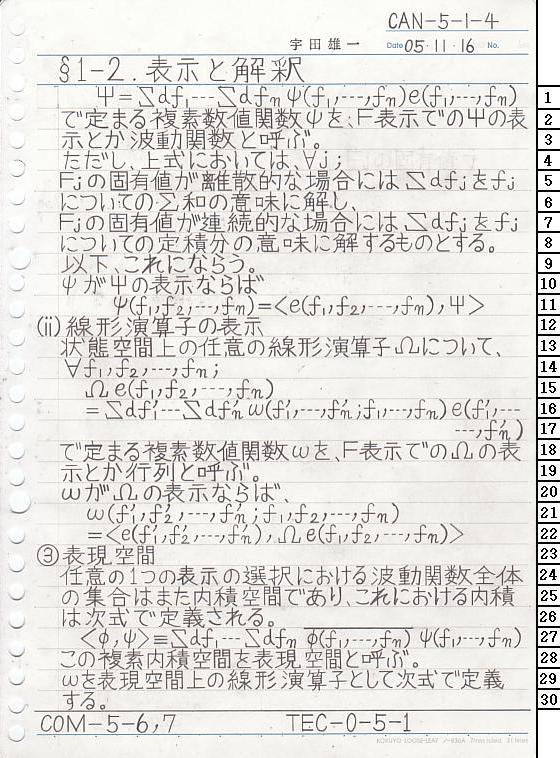 CAN-5-1-4
宇田雄一 Date 05・11・16 No.
§1-2.表示と解釈
Ψ=∑df₁---∑dfₙ ψ(f₁,---,fₙ)e(f₁,---,fₙ) 1
で定まる複素数値関数ψを、F表示でのΨの表 2
示とか波動関数と呼ぶ。 3
ただし、上式においては、∀j; 4
Fjの固有値が離散的な場合には∑dfjをfj 5
についてのΣ和の意味に解し、 6
Fjの固有値が連続的な場合には、∑dfjをfj 7
についての定積分の意味に解するものとする。 8
以下、これにならう。 9
ψがΨの表示ならば 10
ψ(f₁,f₂,---,fₙ)=<e(f₁,f₂,---,fₙ),Ψ> 11
(ii)線形演算子の表示 12
状態空間上の任意の線形演算子Ωについて、 13
∀f₁,f₂,---,fₙ; 14
Ωe(f₁,f₂,---,fₙ) 15
=∑df₁′---∑dfₙ′ω(f₁′,---,fₙ′;f₁,---,fₙ)e(f₁′,--- 16
---,fₙ′) 17
で定まる複素数値関数ωを、F表示でのΩの表 18
示とか行列と呼ぶ。 19
ωがΩの表示ならば、 20
ω(f₁′,f₂′,---,fₙ′;f₁,f₂,---,fₙ) 21
=<e(f₁′,f₂′,---,fₙ′),Ωe(f₁,f₂,---,fₙ)> 22
③表現空間 23
任意の1つの表示の選択における波動関数全体 24
の集合はまた内積空間であり、これにおける内積 25
は次式で定義される。 26
<φ,ψ>≡∑df₁---∑dfₙ φ̅(̅f̅₁̅,̅-̅-̅-̅,̅f̅ₙ̅)̅ ψ(f₁,---,fₙ) 27
この複素内積空間を表現空間と呼ぶ。 28
ωを表現空間上の線形演算子として次式で定義 29
する。 30
COM-5-6,7 TEC-0-5-1
KOKUYO LOOSE-LEAF ノ-836A 7mm ruled 31 lines